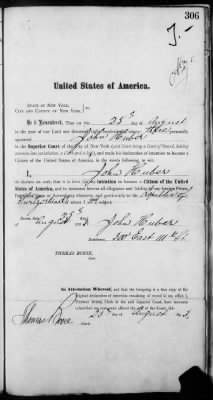 306
J.
United States of America.
STATE OF NEW YORK,
CITY AND COUNTY OF NEW YORK, } ss.:
Be it Remembered, That on the 25th day of August
in the year of our Lord one thousand eight hundred and ninety three personally
appeared John Huber
in the Superior Court of the City of New York (said Court being a Court of Record, having
common law jurisdiction, a Clerk and a Seal), and made his declaration of intention to become a
Citizen of the United States of America, in the words following, to wit:
I, John Huber
do declare on oath, that it is bona fide my intention to become a Citizen of the United
States of America, and to renounce forever all allegiance and fidelity to any foreign Prince,
Potentate, State or Sovereignty whatever, and particularly to the Republic of
Switzerland of whom I am subject.
Sworn, this 25th
August 1893. John Huber
Residence, 300 East 111th St
THOMAS BOESE,
Clerk.
In Attestation Whereof, and that the foregoing is a true copy of the
original declaration of intention remaining of record in my office, I,
THOMAS BOESE, Clerk of the said Superior Court, have hereunto
subscribed my name and affixed the seal of the said Court, this
25 day of August 1893.
Thomas Boese
Clerk.